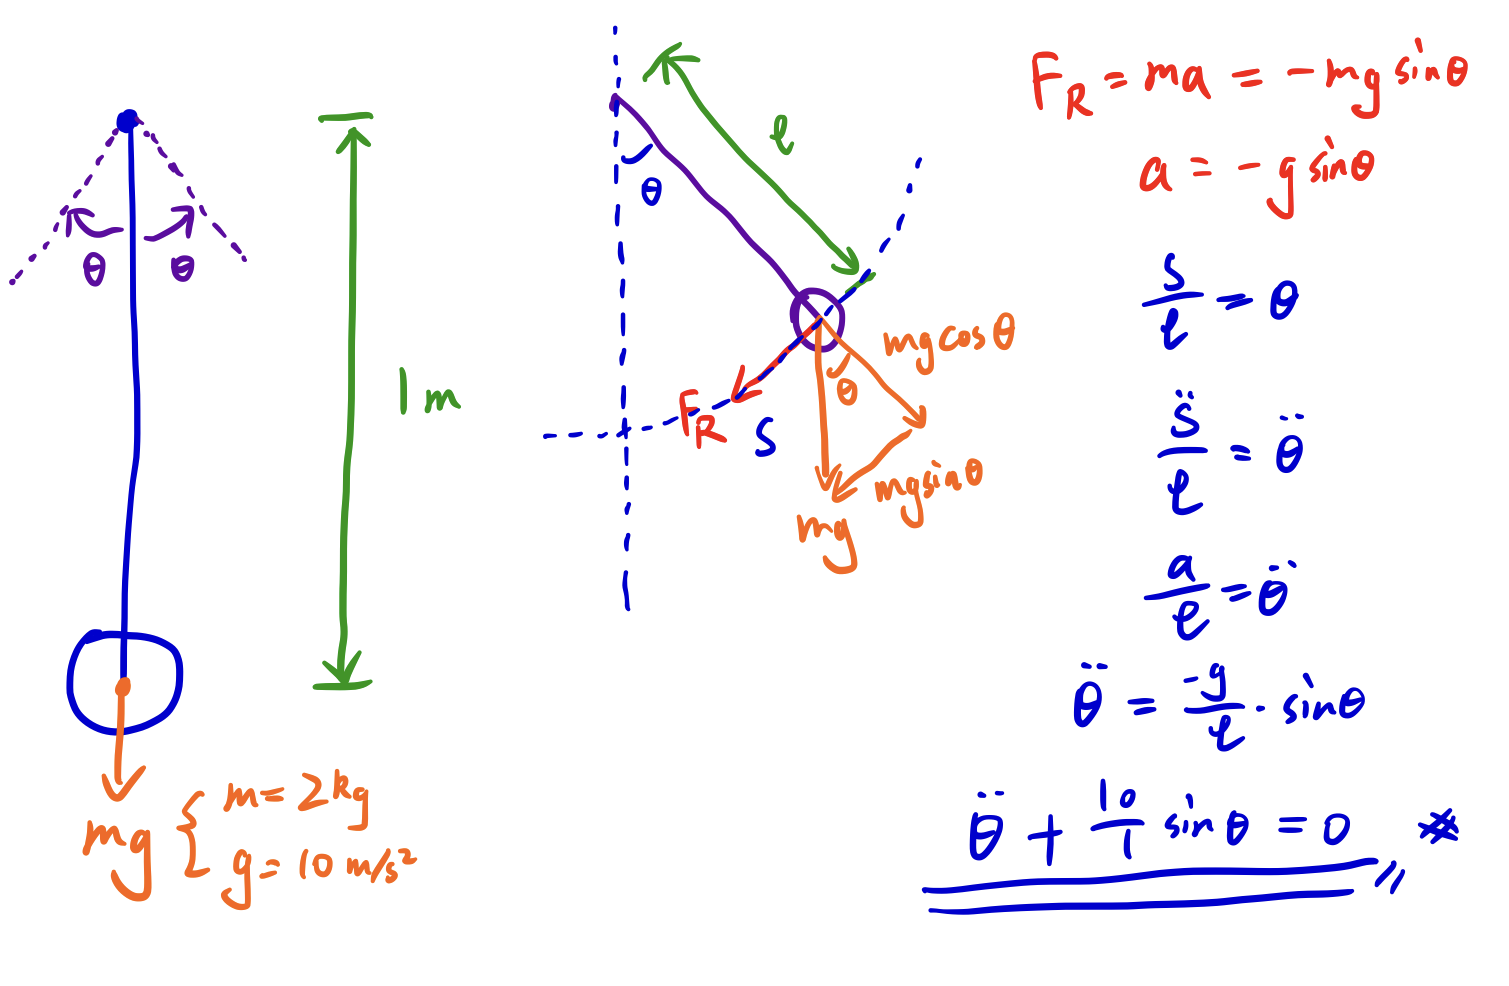 θ θ
1 m
mg { m = 2 kg
g = 10 m/s²
l
θ
mg cos θ
θ
F_R
S
mg sin θ
mg
F_R = ma = -mg sin θ
a = -g sin θ
s/l = θ
s̈/l = θ̈
a/l = θ̈
θ̈ = -g/l · sin θ
θ̈ + 10/1 sin θ = 0 ※